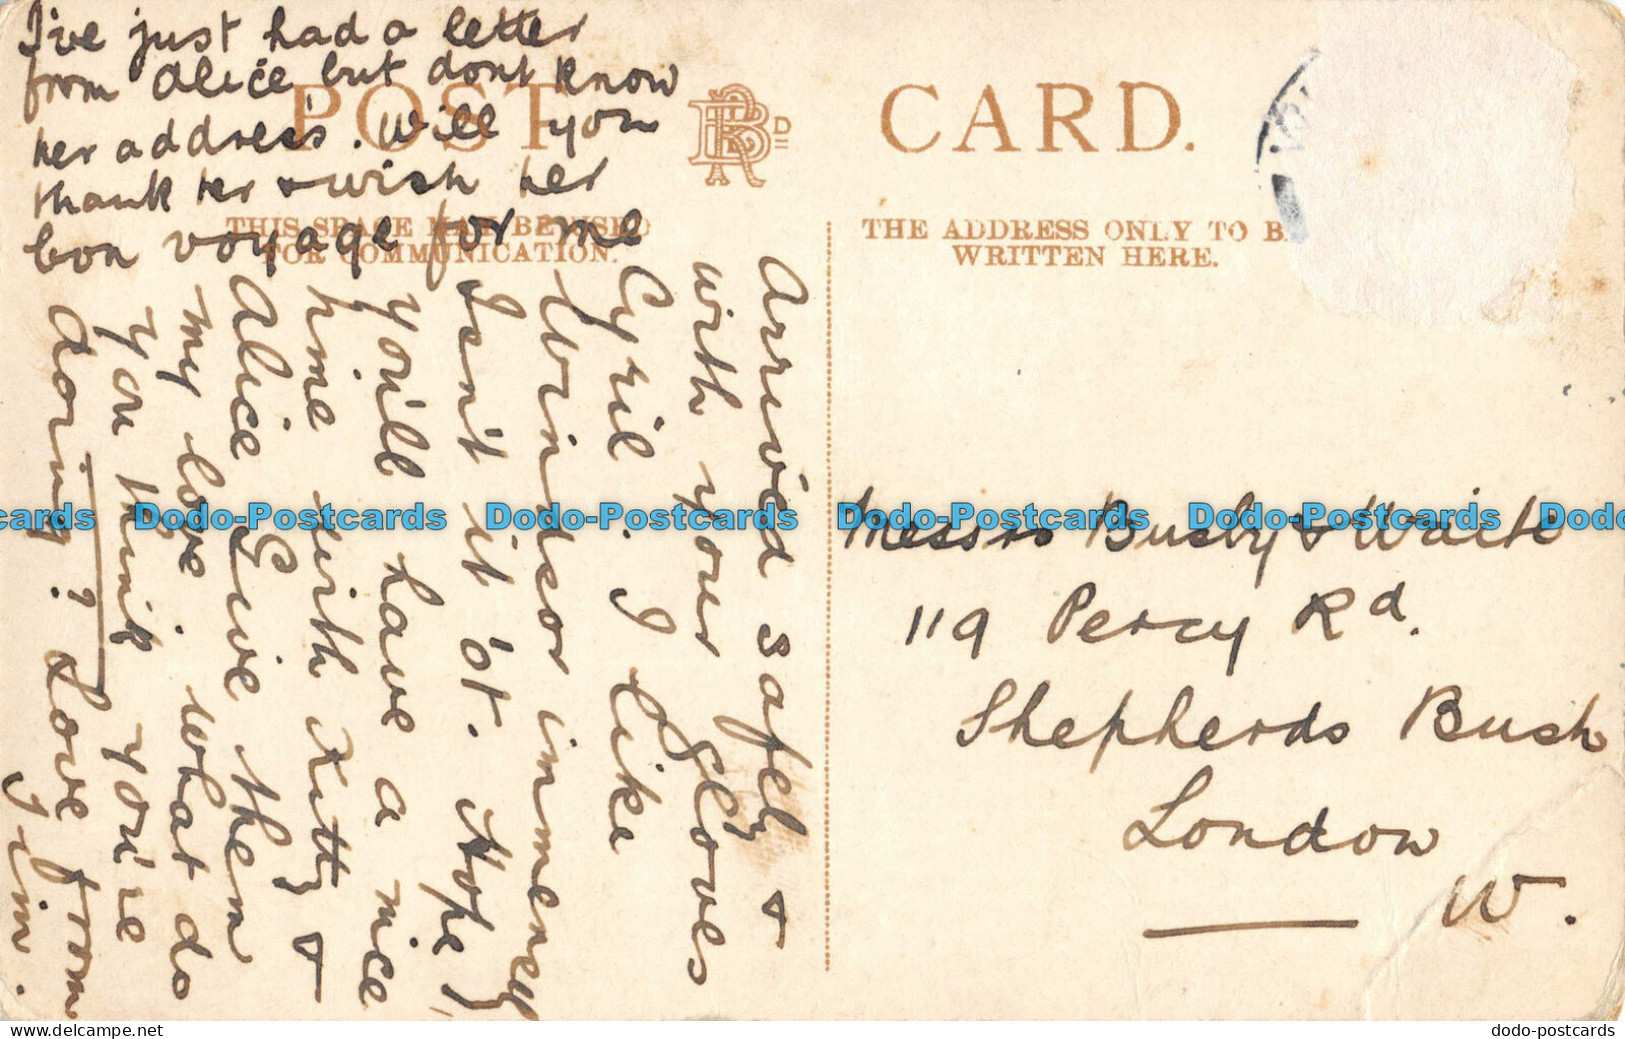 I've just had a letter
from Alice, but dont know
her address. Will you
thank her & wish her
bon voyage for me
POST CARD.
THIS SPACE MAY BE USED
FOR COMMUNICATION.
THE ADDRESS ONLY TO B
WRITTEN HERE.
Arrived safely &
with your gloves
Cyril. I like
Windsor immensely
Isn't it 'ot. Hope
you'll have a nice
time with Kitty &
Alice Give them
my love. What do
you think you're
doing? Love from
Jim.
Messrs Busby & Waite
119 Percy Rd.
Shepherds Bush
London
W.
cards Dodo-Postcards Dodo-Postcards Dodo-Postcards Dodo-Postcards Dodo
www.delcampe.net
dodo-postcards